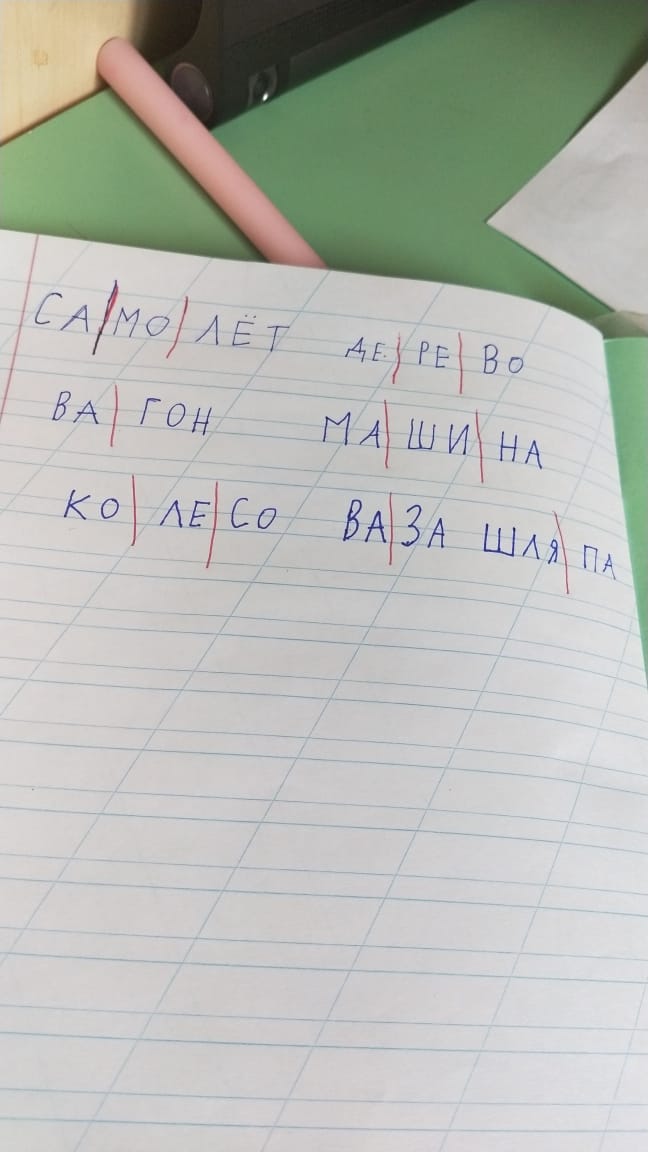 СА/МО/ЛЁТ ДЕ/РЕ/ВО
ВА/ГОН МА/ШИ/НА
КО/ЛЕ/СО ВА/ЗА ШЛЯ/ПА